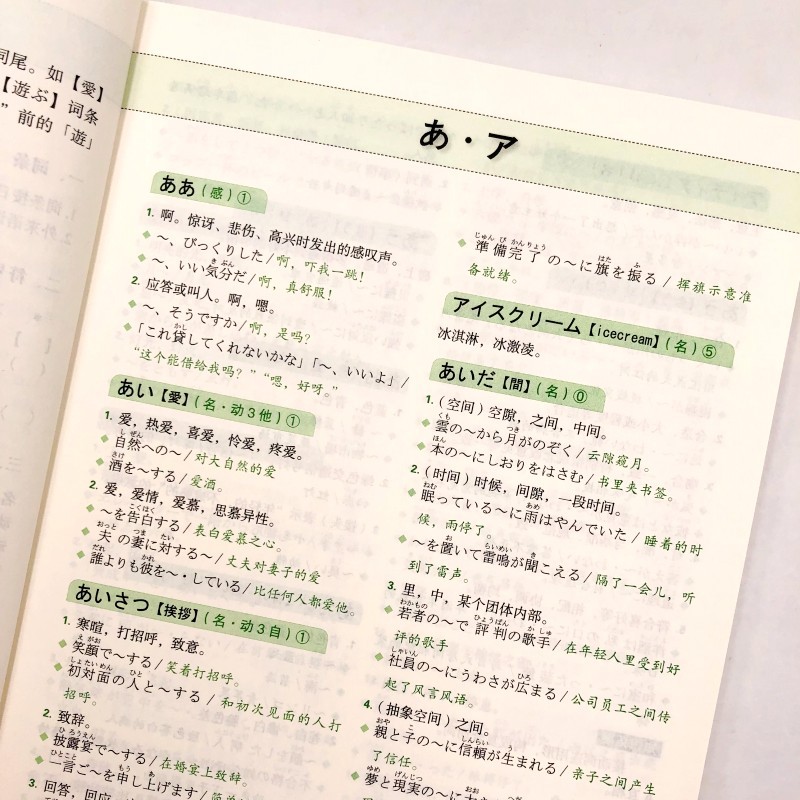 词尾。如【愛】
【遊ぶ】词条
” 前的「遊」
あ・ア
ああ(感)①
1. 啊。惊讶、悲伤、高兴时发出的感叹声。
◆ ～、びっくりした/啊，吓我一跳！
◆ ～、いい気分だ/啊，真舒服！
2. 应答或叫人。啊，嗯。
◆ ～、そうですか/啊，是吗？
◆ 「これ貸してくれないかな」「～、いいよ」/
“这个能借给我吗？”“嗯，好呀。”
あい【愛】(名·动3他)①
1. 爱，热爱，喜爱，怜爱，疼爱。
◆ 自然への～/对大自然的爱
◆ 酒を～する/爱酒。
2. 爱，爱情，爱慕，思慕异性。
◆ ～を告白する/表白爱慕之心。
◆ 夫の妻に対する～/丈夫对妻子的爱
◆ 誰よりも彼を～·している/比任何人都爱他。
あいさつ【挨拶】(名·动3自)①
1. 寒暄，打招呼，致意。
◆ 笑顔で～する/笑着打招呼。
◆ 初対面の人と～する/和初次见面的人打
招呼。
2. 致辞。
◆ 披露宴で～する/在婚宴上致辞。
◆ 一言ご～を申し上げます/
3. 回答，回应
◆ 準備完了の～に旗を振る/挥旗示意准
备各就绪。
アイスクリーム【icecream】(名)⑤
冰淇淋，冰激凌。
あいだ【間】(名)⓪
1. (空间)空隙，之间，中间。
◆ 雲の～から月がのぞく/云隙窥月。
◆ 本の～にしおりをはさむ/书里夹书签。
2. (时间)时候，间隙，一段时间。
◆ 眠っている～に雨はやんでいた/睡着的时
候，雨停了。
◆ ～を置いて雷鳴が聞こえる/隔了一会儿，听
到了雷声。
3. 里，中，某个团体内部。
◆ 若者の～で評判の歌手/在年轻人里受到好
评的歌手
◆ 社員の～にうわさが広まる/公司员工之间传
起了风言风语。
4. (抽象空间)之间。
◆ 親と子の～に信頼が生まれる/亲子之间产生
了信任。
◆ 夢と現実の～に